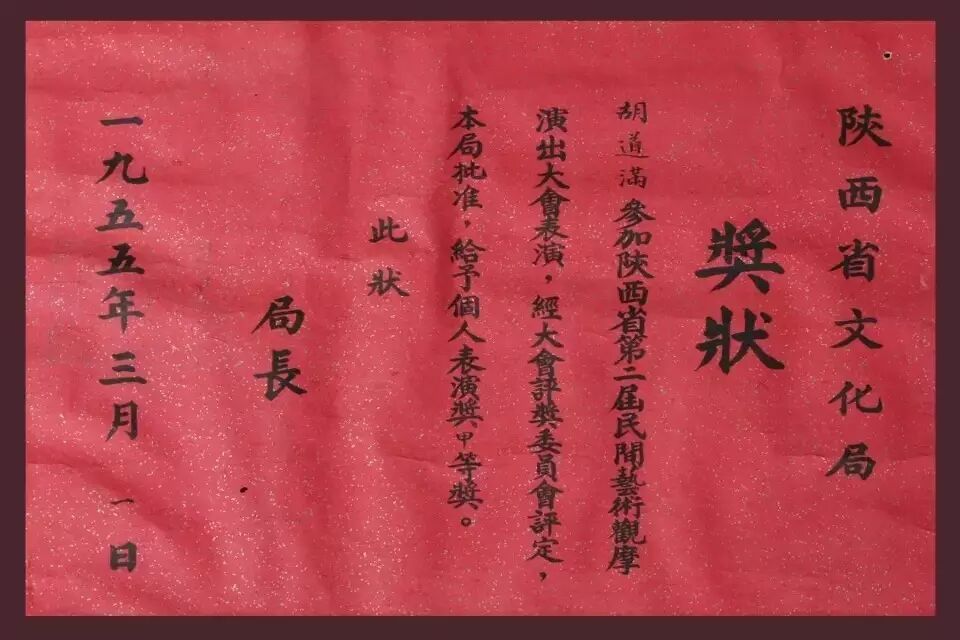 陝西省文化局
獎狀
胡道滿參加陝西省第二屆民間藝術觀摩
演出大會表演，經大會評獎委員會評定，
本局批准，給予個人表演獎甲等獎。
此狀
局長
一九五五年三月一日